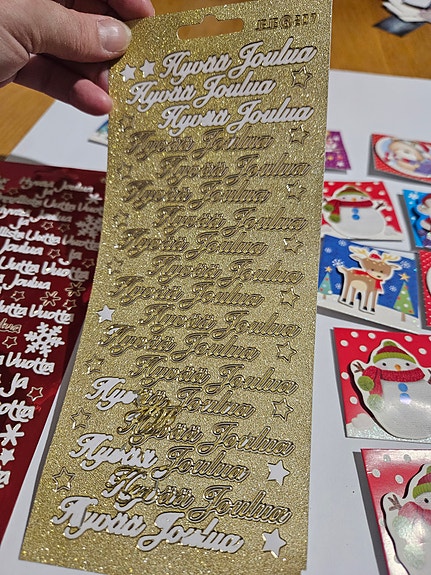 Hyvää Joulua
Hyvää Joulua
Hyvää Joulua
Hyvää Joulua
Hyvää Joulua
Hyvää Joulua
Hyvää Joulua
Hyvää Joulua
Hyvää Joulua
Hyvää Joulua
Hyvää Joulua
Hyvää Joulua
Hyvää Joulua
Hyvää Joulua
Hyvää Joulua
Hyvää Joulua
Hyvää Joulua
Hyvää Joulua
Joulua
Uutta Vuotta
Joulua Ja
Uutta Vuotta
Joulua
Uutta Vuotta
Uutta
Ja
Uutta